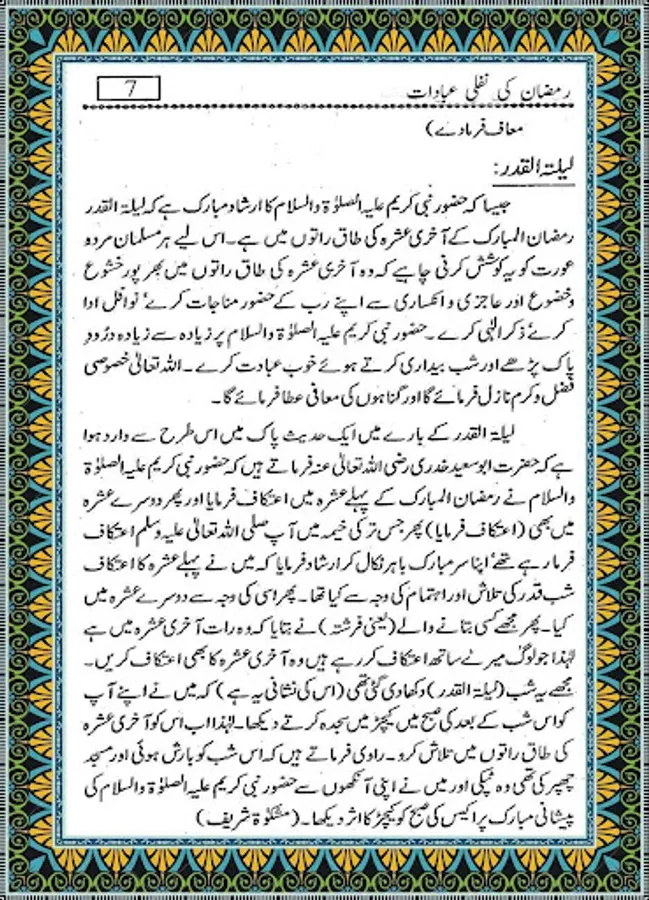 رمضان کی نفلی عبادات 7
معاف فرمادے)
لیلۃ القدر:
جیسا کہ حضور نبی کریم علیہ الصلوٰۃ والسلام کا ارشاد مبارک ہے کہ لیلۃ القدر
رمضان المبارک کے آخری عشرہ کی طاق راتوں میں ہے۔ اس لیے ہر مسلمان مرد و
عورت کو یہ کوشش کرنی چاہیے کہ وہ آخری عشرہ کی طاق راتوں میں بھرپور خشوع
و خضوع اور عاجزی و انکساری سے اپنے رب کے حضور مناجات کرے' نوافل ادا
کرئے ذکر الٰہی کرے۔ حضور نبی کریم علیہ الصلوٰۃ والسلام پر زیادہ سے زیادہ درُود
پاک پڑھے اور شب بیداری کرتے ہوئے خوب عبادت کرے۔ اللہ تعالیٰ خصوصی
فضل و کرم نازل فرمائے گا اور گناہوں کی معافی عطا فرمائے گا۔
لیلۃ القدر کے بارے میں ایک حدیث پاک میں اس طرح سے وارد ہوا
ہے کہ حضرت ابو سعید خدری رضی اللہ تعالیٰ عنہ فرماتے ہیں کہ حضور نبی کریم علیہ الصلوٰۃ
والسلام نے رمضان المبارک کے پہلے عشرہ میں اعتکاف فرمایا اور پھر دوسرے عشرہ
میں بھی (اعتکاف فرمایا) پھر جس ترکی خیمہ میں آپ صلی اللہ تعالیٰ علیہ وسلم اعتکاف
فرما رہے تھے' اپنا سر مبارک باہر نکال کر ارشاد فرمایا کہ میں نے پہلے عشرہ کا اعتکاف
شب قدر کی تلاش اور اہتمام کی وجہ سے کیا تھا۔ پھر اسی کی وجہ سے دوسرے عشرہ میں
کیا۔ پھر مجھے کسی بتانے والے (یعنی فرشتہ) نے بتایا کہ وہ رات آخری عشرہ میں ہے
لہٰذا جو لوگ میرے ساتھ اعتکاف کر رہے ہیں وہ آخری عشرہ کا بھی اعتکاف کریں۔
مجھے یہ شب (لیلۃ القدر) دکھا دی گئی تھی (اس کی نشانی یہ ہے) کہ میں نے اپنے آپ
کو اس شب کے بعد کی صبح میں کیچڑ میں سجدہ کرتے دیکھا۔ لہٰذا اب اس کو آخری عشرہ
کی طاق راتوں میں تلاش کرو۔ راوی فرماتے ہیں کہ اس شب کو بارش ہوئی اور مسجد
چھپر کی تھی وہ ٹپکی اور میں نے اپنی آنکھوں سے حضور نبی کریم علیہ الصلوٰۃ والسلام کی
پیشانی مبارک پر اکیس کی صبح کو کیچڑ کا اثر دیکھا۔ (مشکوٰۃ شریف)